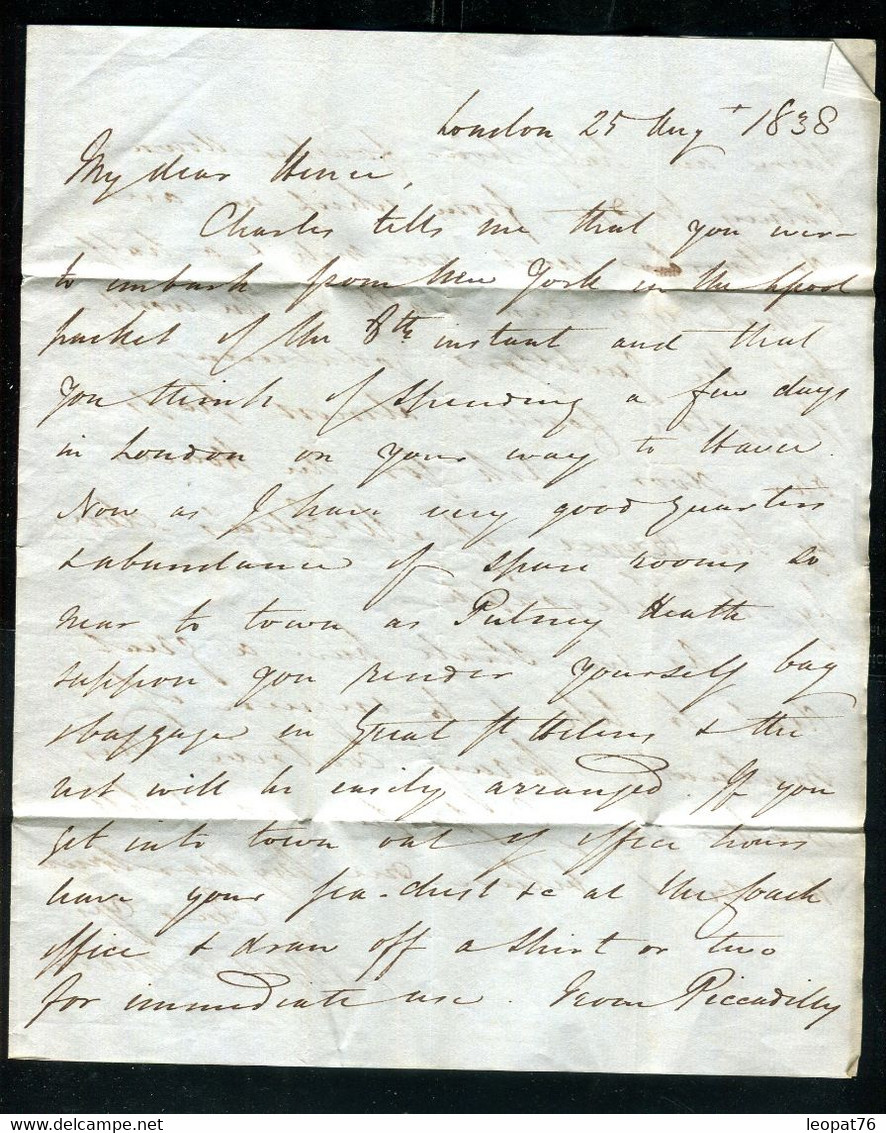 London 25 Augt 1838
My dear
Charles tells me that you were
to embark from New York in the Lpool
packet of the 8th instant and that
you think of spending a few days
in London on your way to Havre.
Now as I have very good quarters
& abundance of spare rooms so
near to town as Putney Heath
suppose you render yourself bag
& baggage in Great St Helens & the
rest will be easily arranged. If you
get into town out of office hours
leave your sea-chest &c at the Coach
office & draw off a shirt or two
for immediate use. From Piccadilly
delcampe.net
leopat76